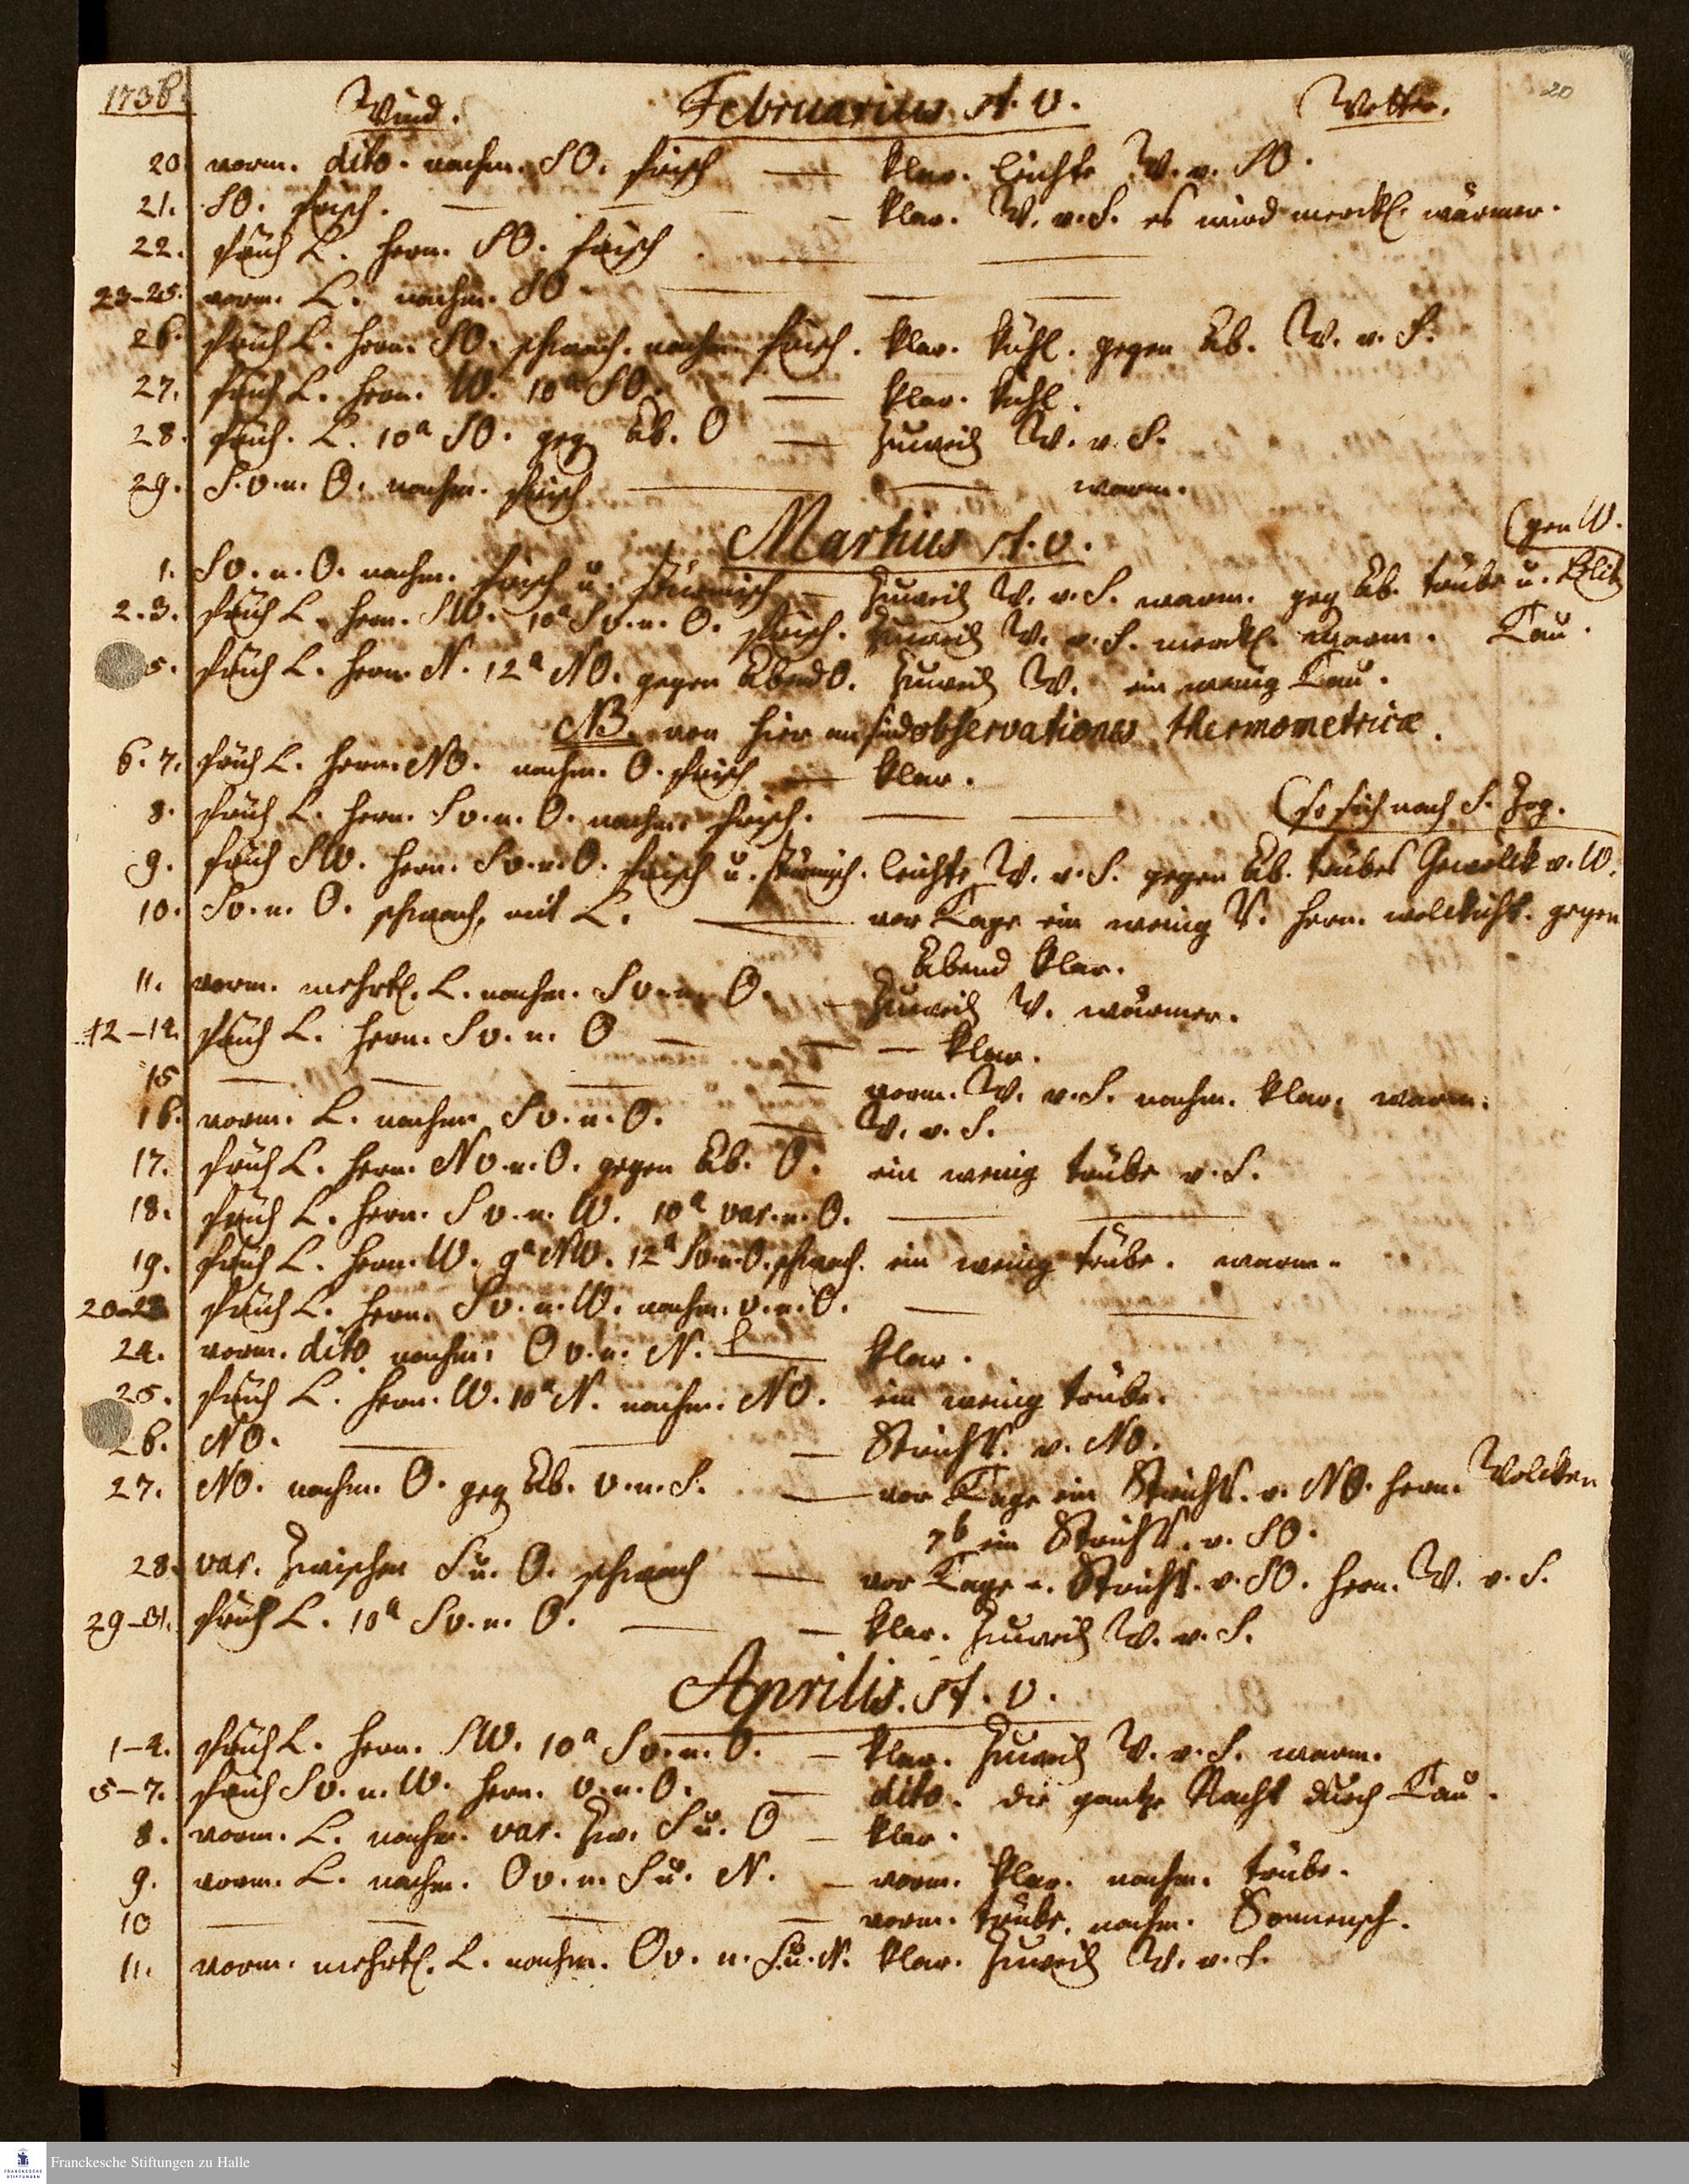 1736. Wind. Februarius st. v. Wetter. 20
20 vorm. dito. nachm. SO. frisch — klar. leichte W. v. SO.
21. SO. frisch. — — — klar. W. v. S. es wird merckl. wärmer.
22. früh L. hern. SO. frisch — —
23-25. vorm. L. nachm. SO — — —
26. früh L. hern. SO. schwach. nachm. frisch. klar. kühl. gegen Ab. W. v. S.
27. früh L. hern. W. 10a SO. — klar. kühl.
28. früh. L. 10a SO. geg Ab. O — Zuweil W. v. S.
29. S. v. n. O. nachm. frisch — — warm.
Martius st. v.
(gen W.
1. S v. n. O. nachm. frisch u. stürmisch — Zuweil W. v. S. warm. geg Ab. trübe u. Blitz
2.3. früh L. hern. SW. 10a S v. n. O. frisch. Zuweil W. v. S. merckl. warm. Tau.
5. früh L. hern. N. 12a NO. gegen Abend O. Zuweil W. ein wenig Tau.
NB. von hier an sind observationes thermometricæ.
6.7. früh L. hern. NO. nachm. O. frisch — klar.
8. früh L. hern. S v. n. O. nachm. frisch. — —
(so sich nach S. zog.
9. früh SW. hern. S v. n. O. frisch u. stürmisch. leichte W. v. S. gegen Ab. trübes Gewölck v. W.
10. S v. n. O. schwach, mit L. — vor Tage ein wenig W. hern. wolckicht. gegen
Abend klar.
11. vorm. mehrtl. L. nachm. S v. n. O. — Zuweil W. wärmer.
12-14. früh L. hern. S v. n. O — — — klar.
15 — — — — vorm. W. v. S. nachm. klar. warm.
16. vorm. L. nachm. S v. n. O. — W. v. S.
17. früh L. hern. N v. n. O. gegen Ab. O. ein wenig trübe v. S.
18. früh L. hern. S v. n. W. 10a var. n. O. — —
19. früh L. hern. W. 9a NW. 12a S v. n. O. schwach. ein wenig trübe. warm.
20-23 früh L. hern. S v. n. W. nachm. v. n. O. — —
24. vorm. dito nachm. O v. n. N. — klar.
25. früh L. hern. W. 10a N. nachm. NO. ein wenig trübe.
26. NO. — — — Strichr. v. NO.
27. NO. nachm. O. geg Ab. v. n. S. — vor Tage ein Strichr. v. NO. hern. Wolcken
7b ein Strichr. v. SO.
28. var. zwischen S u. O. schwach — vor Tage e. Strichr. v. SO. hern. W. v. S.
29-31. früh L. 10a S v. n. O. — — klar. Zuweil W. v. S.
Aprilis. st. v.
1-4. früh L. hern. SW. 10a S v. n. O. — klar. Zuweil W. v. S. warm.
5-7. früh S v. n. W. hern. v. n. O. — dito. die gantze Nacht durch Tau.
8. vorm. L. nachm. var. zw. S u. O — klar.
9. vorm. L. nachm. O v. n. S u. N. — vorm. klar. nachm. trübe.
10 — — — — vorm. trübe. nachm. Sonnensch.
11. vorm. mehrtl. L. nachm. O v. n. S. u. N. klar. Zuweil W. v. S.
FRANCKESCHE STIFTUNGEN
Franckesche Stiftungen zu Halle